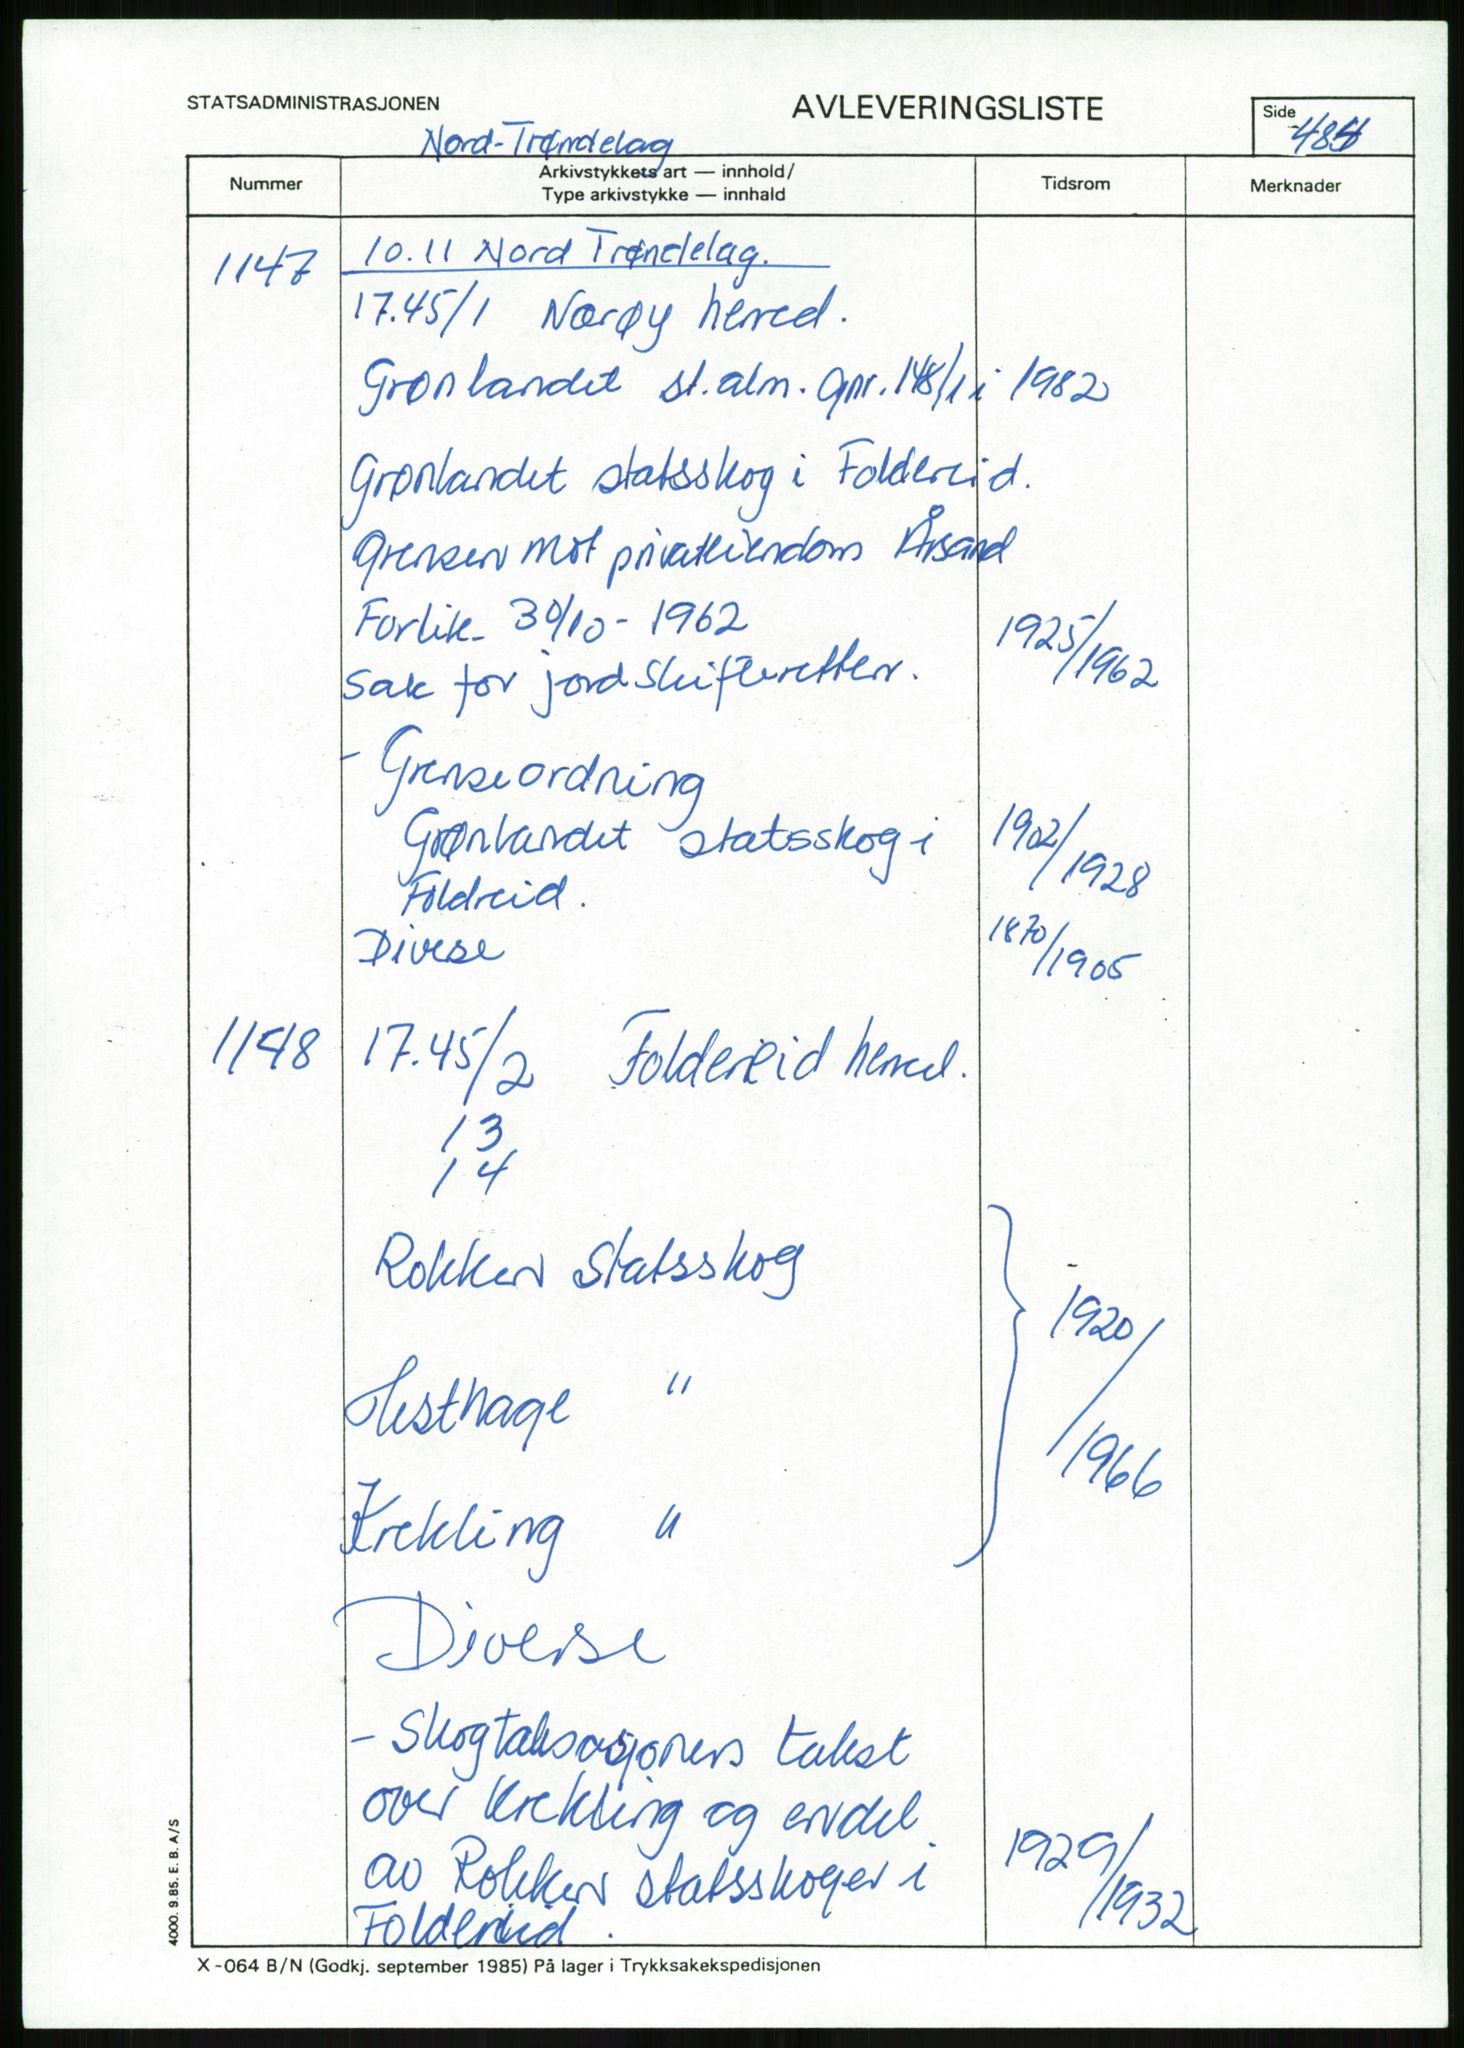 STATSADMINISTRASJONEN
AVLEVERINGSLISTE
Side
Nord-Trøndelag
Nummer
Arkivstykkets art — innhold/
Type arkivstykke — innhald
Tidsrom
Merknader
1147
10.11 Nord Trøndelag.
17.45/1 Nærøy herred.
Grønlandet st.alm. gnr. 148/1 i 1982
Grønlandet statsskog i Foldereid.
Grensen mot privateiendom Årsand
Forlik - 30/10 - 1962
sak for jordskifteretten. 1925/1962
- Grenseordning
Grønlandet statsskog i 1902/1928
Foldreid.
Diverse 1870/1905
1148 17.45/2 Foldereid herred.
/3
/4
Rokken Statsskog
1920/1966
Hesthage "
Krekling "
Diverse
- Skogtaksasjonens takst
over Krekling og endel
av Rokken statsskoger i 1929/1932
Foldereid.
4000. 9.85. E. B. A/S
X-064 B/N (Godkj. september 1985) På lager i Trykksakekspedisjonen